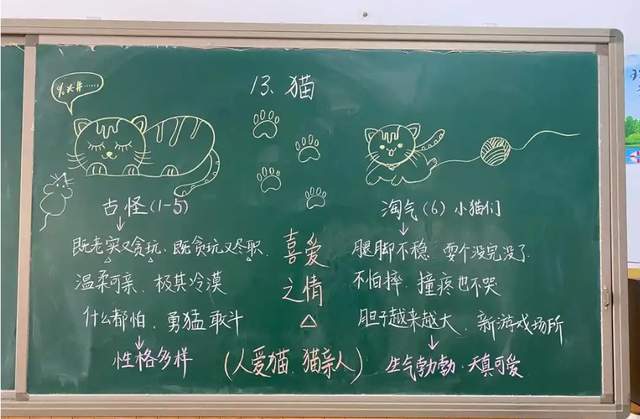 13、猫
古怪(1-5)
既老实又贪玩、既贪玩又尽职
温柔可亲、极其冷漠
什么都怕、勇猛敢斗
性格多样
喜爱
之情
(人爱猫 猫亲人)
淘气(6) 小猫们
腿脚不稳、耍个没完没了
不怕摔、撞疼也不哭
胆子越来越大、新游戏场所
生气勃勃、天真可爱